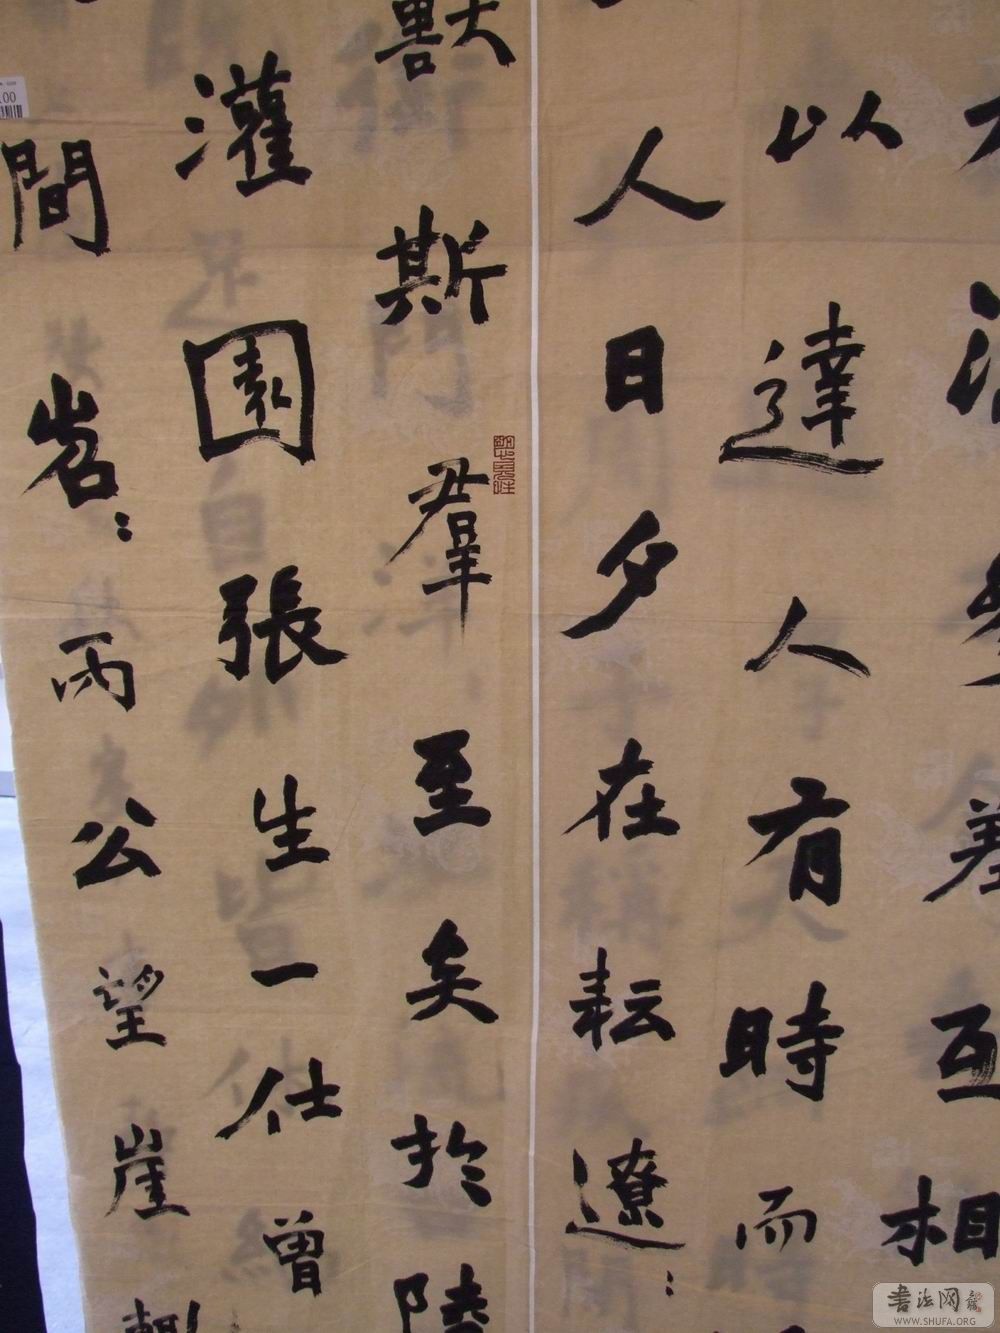 互相
以達人有時而
人日夕在耘遼：
獸斯羣至矣於陸
灌園張生一仕曾
間岧：丙公望崖
.00
书法网
WWW.SHUFA.ORG